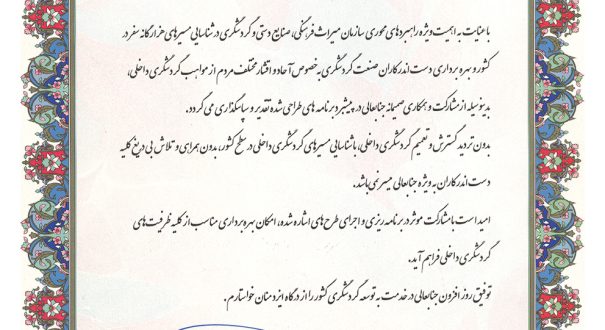 با عنایت به اهمیت ویژه راهبردهای محوری سازمان میراث فرهنگی، صنایع دستی و گردشگری در شناسایی مسیرهای هزارگانه سفر در
کشور و بهره برداری دست اندرکاران صنعت گردشگری به خصوص آحاد و اقشار مختلف مردم از مواهب گردشگری داخلی،
بدینوسیله از مشارکت و همکاری صمیمانه جنابعالی در پیشبرد برنامه های طراحی شده تقدیر و سپاسگذاری می گردد.
بدون تردید گسترش و تعمیم گردشگری داخلی، با شناسایی مسیرهای گردشگری داخلی در سطح کشور، بدون همراهی و تلاش بی دریغ کلیه
دست اندرکاران به ویژه جنابعالی میسر نمی باشد.
امید است با مشارکت موثر در برنامه ریزی و اجرای طرح های اشاره شده، امکان بهره برداری مناسب از کلیه ظرفیت های
گردشگری داخلی فراهم آید.
توفیق روز افزون جنابعالی در خدمت به توسعه گردشگری کشور را از درگاه ایزد منان خواستارم.